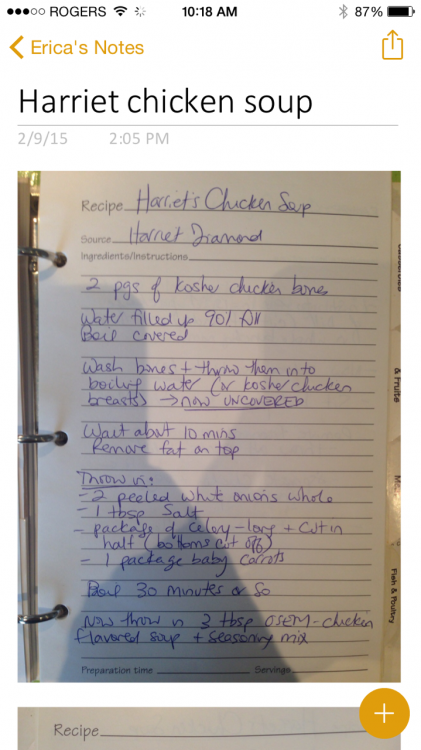 ROGERS 10:18 AM 87%
Erica's Notes
Harriet chicken soup
2/9/15 2:05 PM
Recipe Harriet's Chicken Soup
Source Harriet Diamond
Ingredients/Instructions
2 pgs of kosher chicken bones
Water filled up 90% full
Boil covered
Wash bones + throw them into
boiling water (or kosher chicken
breasts) → NOW UNCOVERED
Wait about 10 mins
Remove fat on top
Throw in:
- 2 peeled white onions whole
- 1 tbsp Salt
- package of Celery - long + cut in
half (bottoms cut off)
- 1 package baby carrots
Boil 30 minutes or so
Now throw in 3 tbsp OSEM - chicken
flavored soup + seasoning mix
Preparation time Servings
& Fruits
Fish & Poultry
Recipe